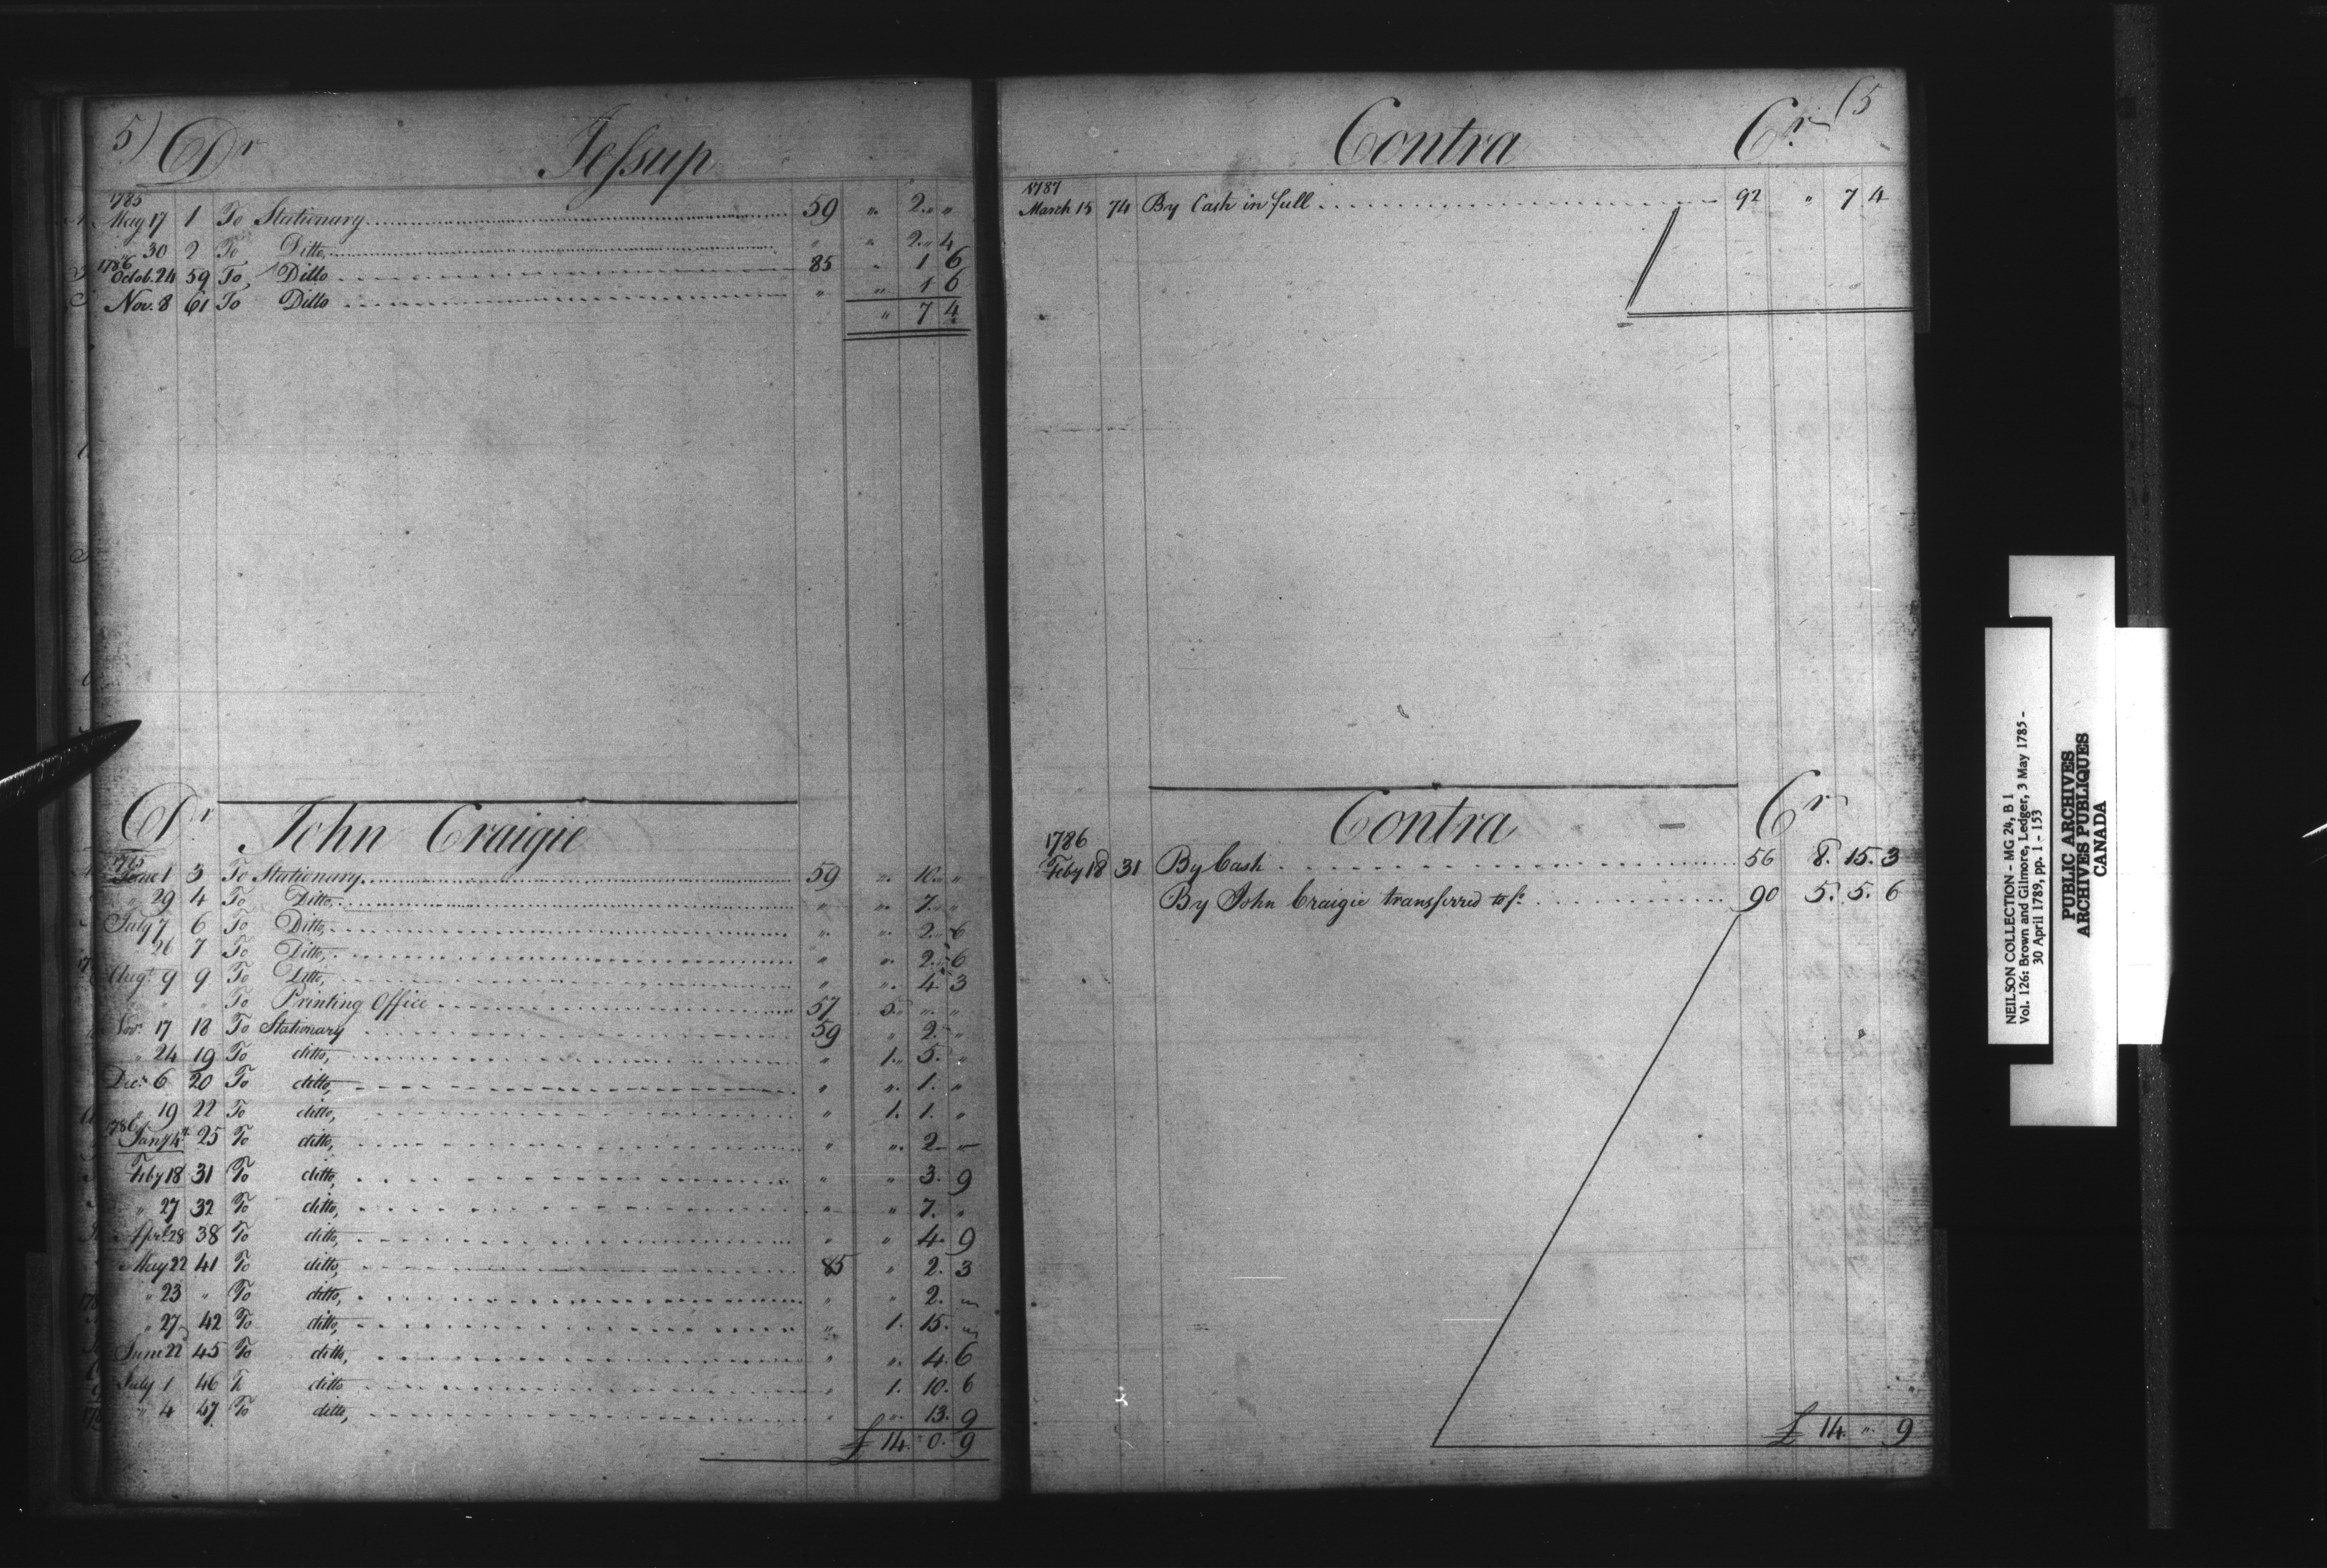 5) Dr Jessup
1785
May 17 1 To Stationary 59 " 2 " "
" 30 2 To Ditto, " " 2 " 4
1786
Octob. 24 59 To, Ditto 85 " 1 6
Nov. 8 61 To Ditto " " 1 6
" 7 4
Dr John Craigie
1785
June 1 3 To Stationary 59 " 10 " "
" 29 4 To Ditto, " " 7 " "
July 7 6 To Ditto, " " 2 " 6
" 26 7 To Ditto, " " 2 " 6
Augt 9 9 To Ditto, " " 4 3
" " " To Printing Office 57 5 " "
Novr 17 18 To Stationary 59 " 2 "
" 24 19 To ditto, " 1. 5. "
Decr 6 20 To ditto, " " 1. "
" 19 22 To ditto, " 1. 1. "
1786
Jany 4 25 To ditto, " " 2 "
Feby 18 31 To ditto, " " 3. 9
" 27 32 To ditto, " " 7. "
Aprl 28 38 To ditto, " " 4. 9
May 22 41 To ditto, 85 " 2. 3
" 23 " To ditto, " " 2. "
" 27 42 To ditto, " 1. 15. "
June 22 45 To ditto, " " 4. 6
July 1 46 To ditto " 1. 10. 6
" 4 47 To ditto, " " 13. 9
£ 14. 0. 9
Contra Cr (5
1787
March 15 74 By Cash in full 92 " 7 4
Contra Cr
1786
Feby 18 31 By Cash 56 8. 15. 3
By John Craigie transferred to fo. 90 5. 5. 6
£ 14. " 9
NEILSON COLLECTION - MG 24, B 1
Vol. 126: Brown and Gilmore, Ledger, 3 May 1785 -
30 April 1789, pp. 1 - 153
PUBLIC ARCHIVES
ARCHIVES PUBLIQUES
CANADA